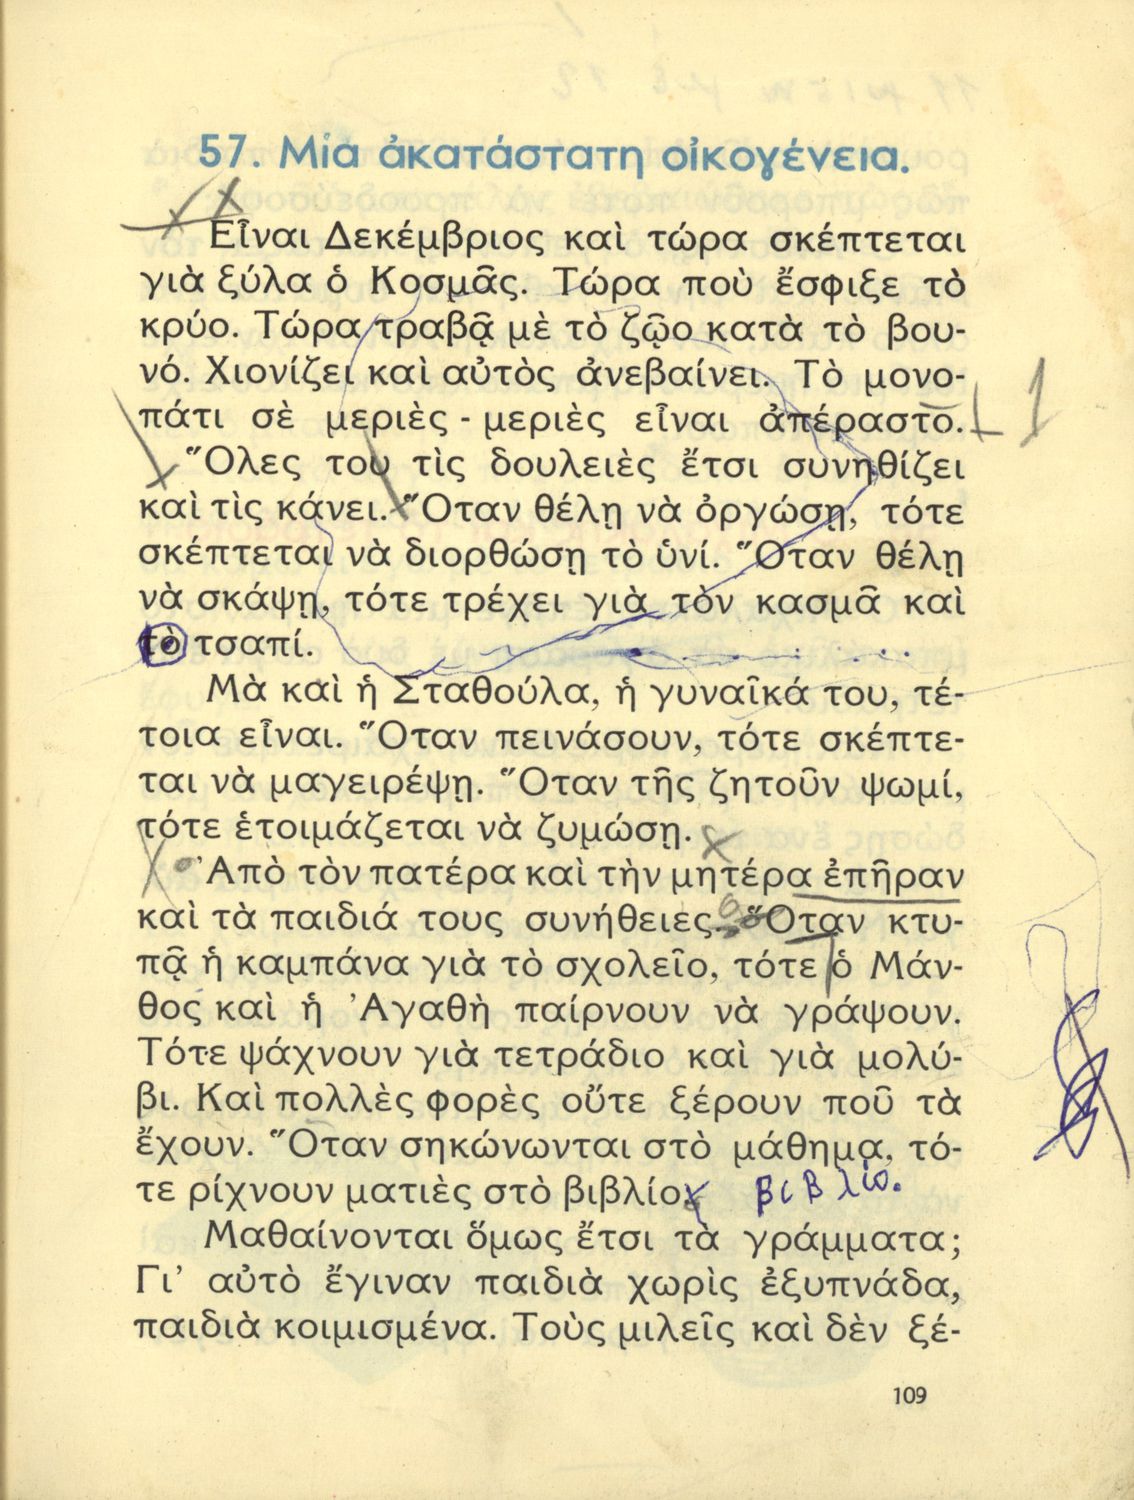 57. Μία ἀκατάστατη οἰκογένεια.
Εἶναι Δεκέμβριος καὶ τώρα σκέπτεται
γιὰ ξύλα ὁ Κοσμᾶς. Τώρα ποὺ ἔσφιξε τὸ
κρύο. Τώρα τραβᾷ μὲ τὸ ζῷο κατὰ τὸ βου-
νό. Χιονίζει καὶ αὐτὸς ἀνεβαίνει. Τὸ μονο-
πάτι σὲ μεριὲς - μεριὲς εἶναι ἀπέραστο.
Ὅλες του τὶς δουλειὲς ἔτσι συνηθίζει
καὶ τὶς κάνει. Ὅταν θέλῃ νὰ ὀργώσῃ, τότε
σκέπτεται νὰ διορθώσῃ τὸ ὑνί. Ὅταν θέλῃ
νὰ σκάψῃ, τότε τρέχει γιὰ τὸν κασμᾶ καὶ
τὸ τσαπί.
Μὰ καὶ ἡ Σταθούλα, ἡ γυναῖκά του, τέ-
τοια εἶναι. Ὅταν πεινάσουν, τότε σκέπτε-
ται νὰ μαγειρέψῃ. Ὅταν τῆς ζητοῦν ψωμί,
τότε ἑτοιμάζεται νὰ ζυμώσῃ.
Ἀπὸ τὸν πατέρα καὶ τὴν μητέρα ἐπῆραν
καὶ τὰ παιδιά τους συνήθειες. Ὅταν κτυ-
πᾷ ἡ καμπάνα γιὰ τὸ σχολεῖο, τότε ὁ Μάν-
θος καὶ ἡ Ἀγαθὴ παίρνουν νὰ γράψουν.
Τότε ψάχνουν γιὰ τετράδιο καὶ γιὰ μολύ-
βι. Καὶ πολλὲς φορὲς οὔτε ξέρουν ποῦ τὰ
ἔχουν. Ὅταν σηκώνωνται στὸ μάθημα, τό-
τε ρίχνουν ματιὲς στὸ βιβλίο. βιβλίο.
Μαθαίνονται ὅμως ἔτσι τὰ γράμματα;
Γι' αὐτὸ ἔγιναν παιδιὰ χωρὶς ἐξυπνάδα,
παιδιὰ κοιμισμένα. Τοὺς μιλεῖς καὶ δὲν ξέ-
109